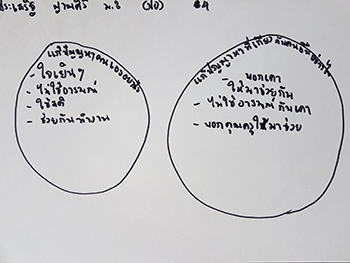 ประเสริฐ ม.8 34
แก้ปัญหาตนเองอย่างไร
- ใจเย็นๆ
- ไม่ใช้อารมณ์
- ใช้สติ
- ช่วยกันทำงาน
แก้ปัญหาที่เกี่ยวกับคนอื่นอย่างไร
- บอกเขาให้มาช่วยกัน
- ไม่ใช้อารมณ์กับเขา
- บอกคุณครูให้มาช่วย